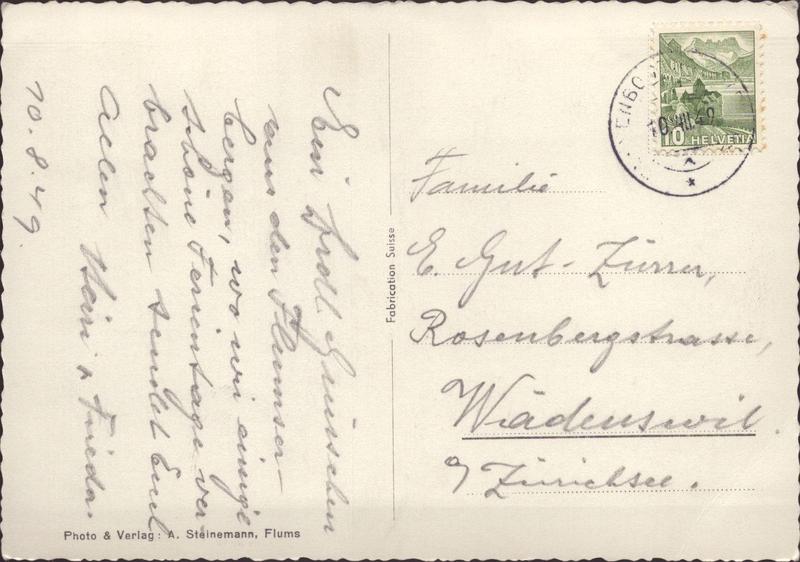 Ein Grüsschen
aus den Flumser-
bergen, wo wir einige
schöne Ferientage ver
brachten sendet Euch
allen Heiri & Frieda.
10.8.49.
Photo & Verlag: A. Steinemann, Flums
Fabrication Suisse
10 HELVETIA
10.VIII.49
Familie
E. Gut-Zürrer,
Rosenbergstrasse,
Wädenswil.
a/ Zürichsee.